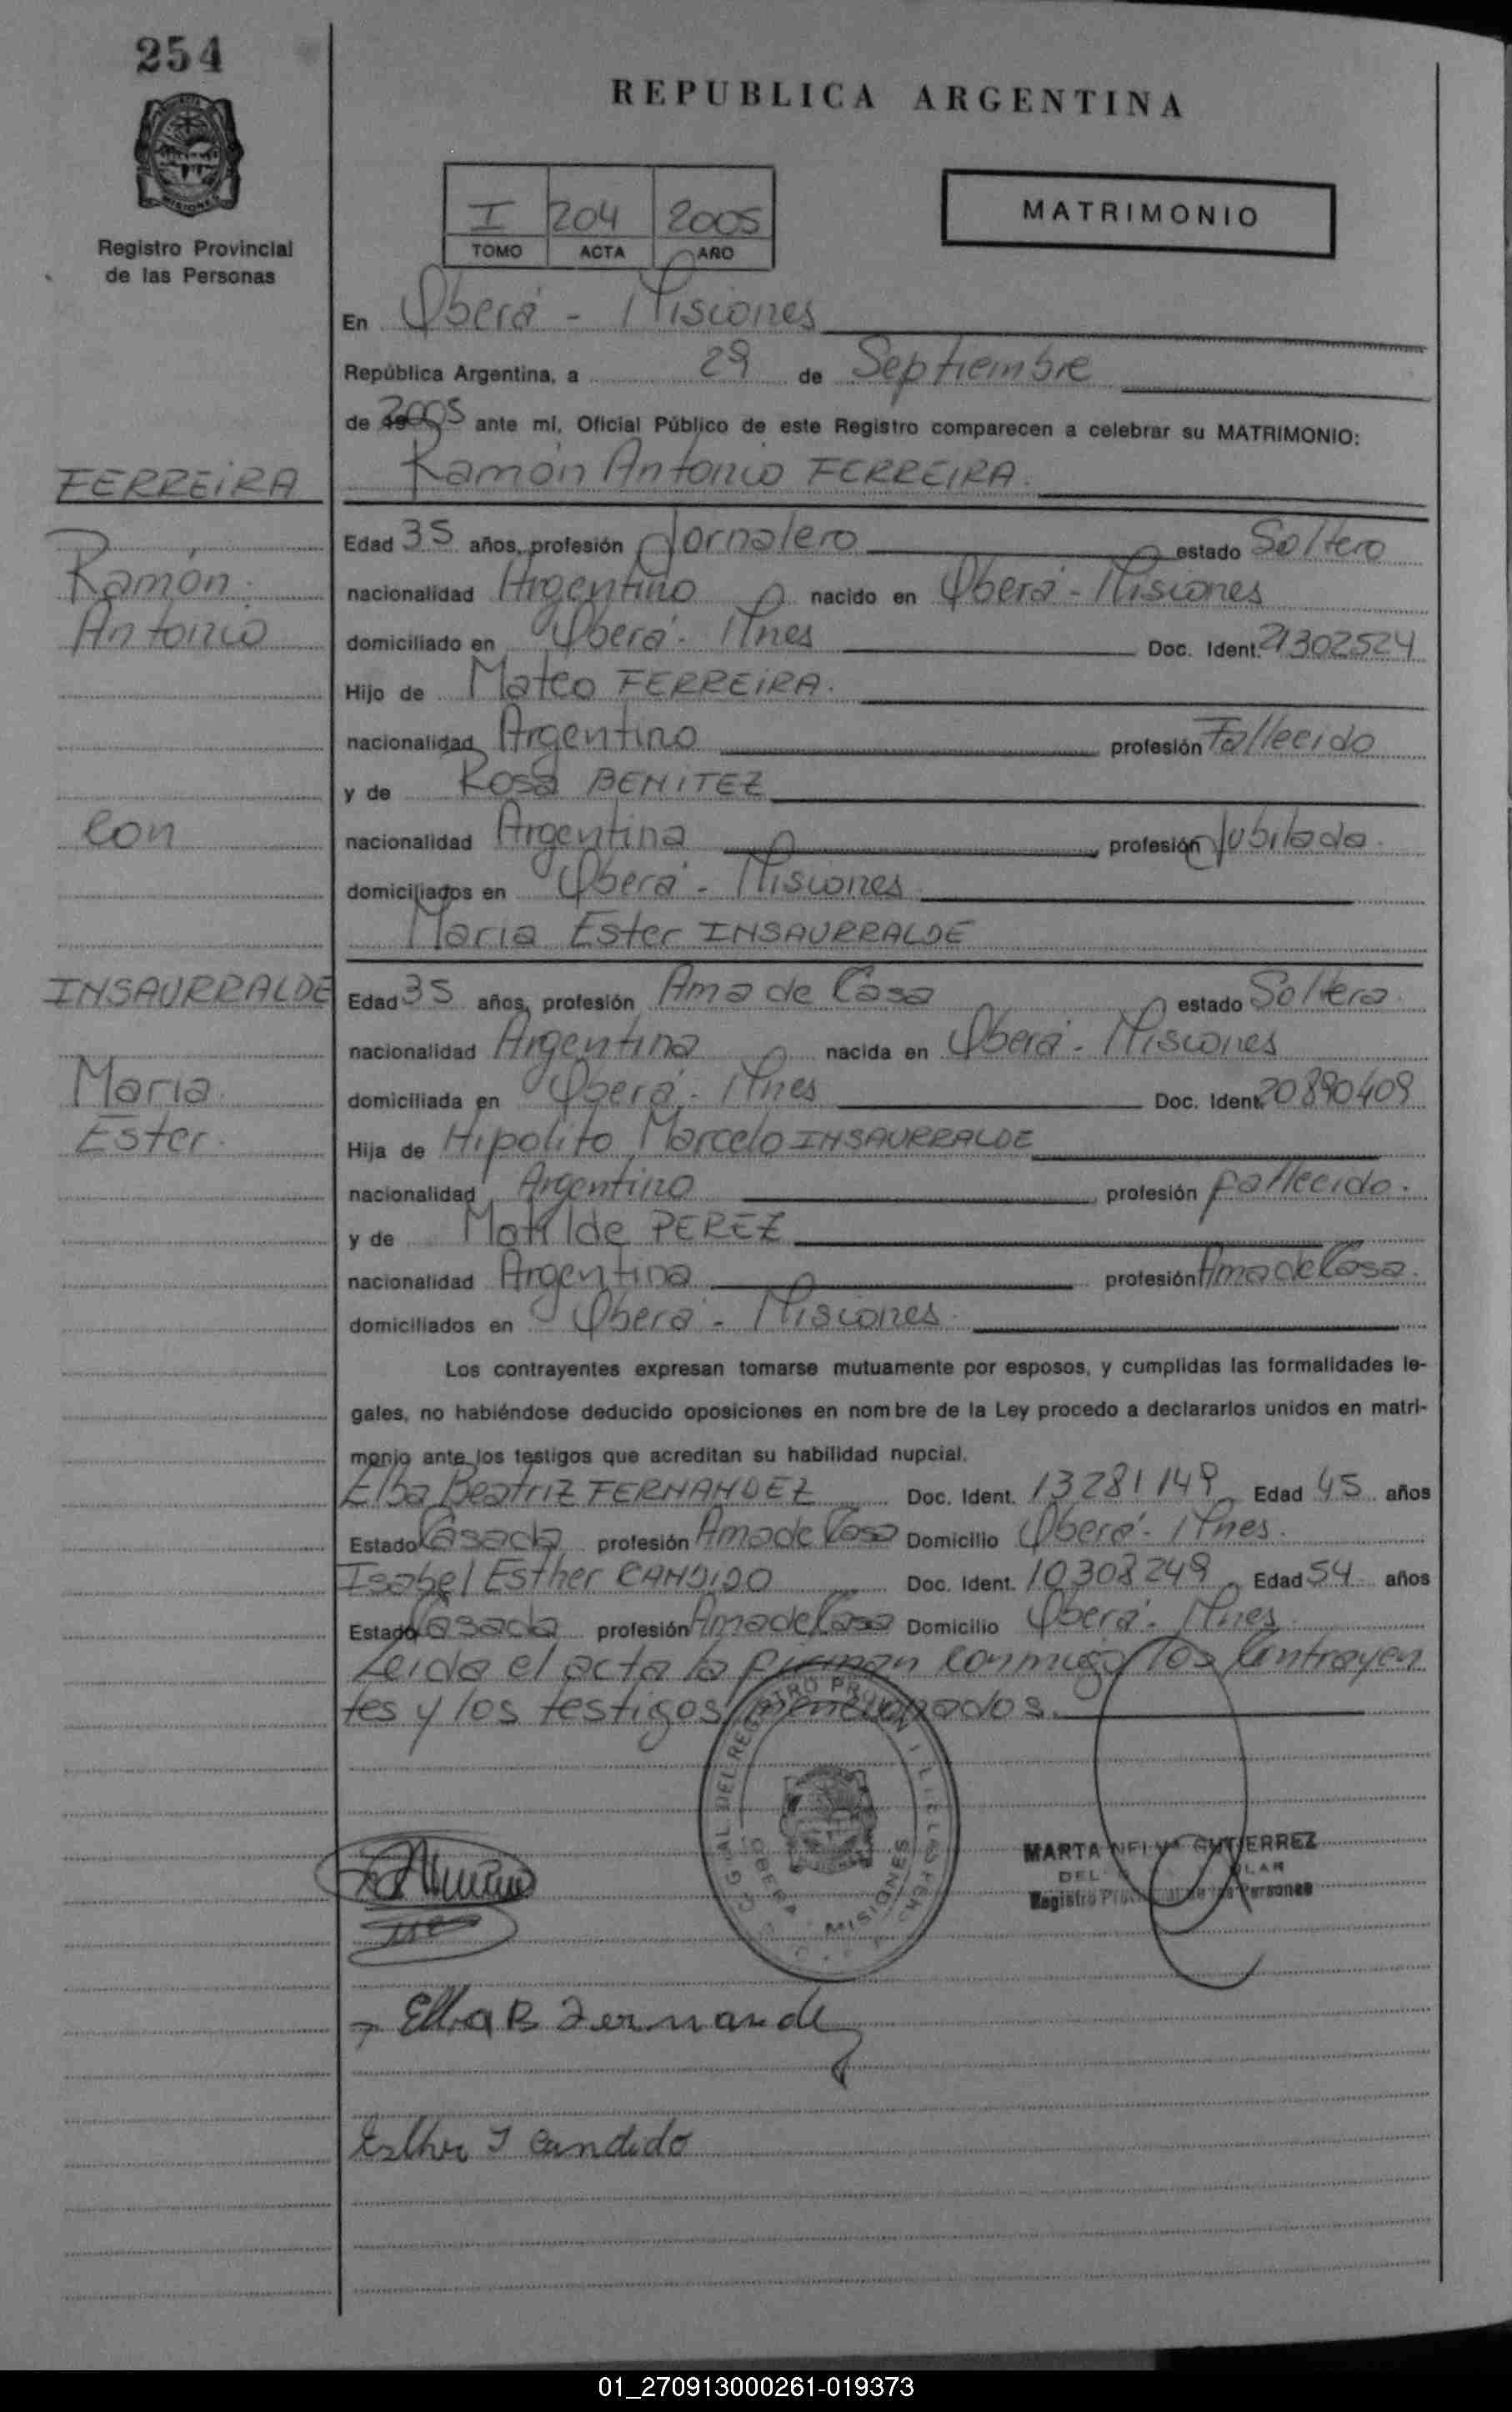 254
REPUBLICA ARGENTINA
MISIONES
Registro Provincial
de las Personas
I 204 2005
TOMO ACTA AÑO
MATRIMONIO
En Oberá - Misiones
República Argentina, a 29 de Septiembre
de 2005 ante mí, Oficial Público de este Registro comparecen a celebrar su MATRIMONIO:
FERREIRA
Ramón Antonio FERREIRA.
Edad 35 años, profesión Jornalero estado Soltero
Ramón
nacionalidad Argentino nacido en Oberá - Misiones
Antonio
domiciliado en Oberá - Mnes Doc. Ident. 21302524
Hijo de Mateo FERREIRA.
nacionalidad Argentino profesión Fallecido
y de Rosa BENITEZ
Con
nacionalidad Argentina profesión Jubilada.
domiciliados en Oberá - Misiones
Maria Ester INSAURRALDE
INSAURRALDE
Edad 35 años, profesión Ama de Casa estado Soltera.
nacionalidad Argentina nacida en Oberá - Misiones
Maria
domiciliada en Oberá - Mnes Doc. Ident. 20890409
Ester.
Hija de Hipolito Marcelo INSAURRALDE
nacionalidad Argentino profesión fallecido.
y de Matilde PEREZ
nacionalidad Argentina profesión Ama de Casa.
domiciliados en Oberá - Misiones.
Los contrayentes expresan tomarse mutuamente por esposos, y cumplidas las formalidades le-
gales, no habiéndose deducido oposiciones en nombre de la Ley procedo a declararlos unidos en matri-
monio ante los testigos que acreditan su habilidad nupcial.
Elba Beatriz FERNANDEZ Doc. Ident. 13281149 Edad 45 años
Estado Casada profesión Ama de Casa Domicilio Oberá - Mnes.
Isabel Esther CANDIDO Doc. Ident. 10308249 Edad 54 años
Estado Casada profesión Ama de Casa Domicilio Oberá - Mnes.
Leida el acta la firman conmigo los Contrayen
tes y los testigos mencionados.
MARTA GUTIERREZ
Registro de las Personas
MISIONES
Elba B Fernandez
Esther I Candido
01_270913000261-019373